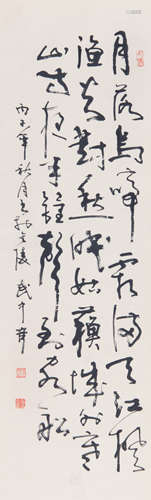 月落烏啼霜滿天江楓
漁火對愁眠姑蘇城外寒
山寺夜半鐘聲到客船
丙子年秋月 金陵 武中奇